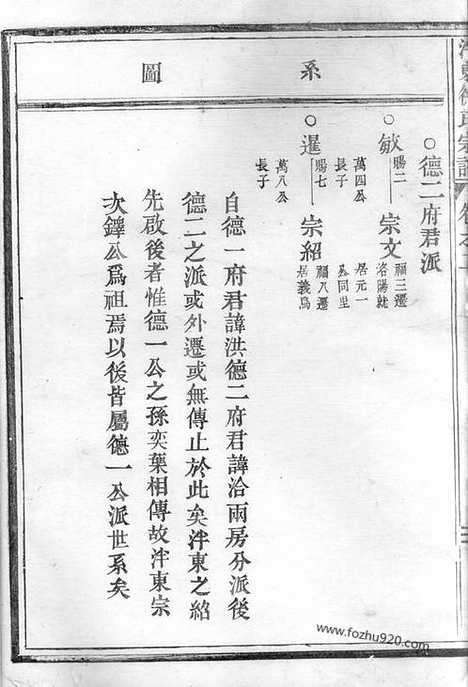 氏宗譜
系圖
○德二府君派
○敏 賜二 萬四公長子 宗文 福三遷洛陽就居元一公同里
○暹 賜七 萬八公長子 宗紹 福八遷居義烏
自德一府君諱洪德二府君諱洽兩房分派後
德二之派或外遷或無傳止於此矣泮東之紹
先啟後者惟德一公之孫奕葉相傳故泮東宗
次鐸公爲祖焉以後皆屬德一公派世系矣
www.fozhu920.com